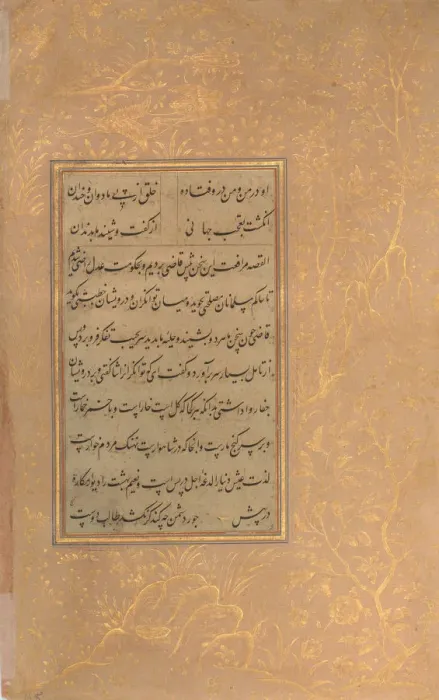 او در من و من درو فتاده خلق از پی ما دوان و خندان
انگشت تعجب جهانی از گفت و شنید ما بدندان
القصه مرافعت این سخن پیش قاضی بردیم و بحکومت عدل راضی شدیم
تا حاکم مسلمانان مصلحتی بجوید و میان توانگران و درویشان بگوید
قاضی چون سخن ما بشنید و حلیه ما بدید سر بجیب تفکر فرو برد و پس
از تامل بسیار سر برآورد و گفت ای که توانگرانرا ثنا گفتی و بر درویشان
جفا روا داشتی بدانکه هرجا که کل است خارست و با خمر خمارست
و بر سر گنج مارست و آنجا که در شاهوارست نهنگ مردم خوارست
لذت عیش دنیا را لدغه اجل در پس است و نعیم بهشت را دیوار مکاره
در پیش جور دشمن چه کند گر نکشد طالب دوست